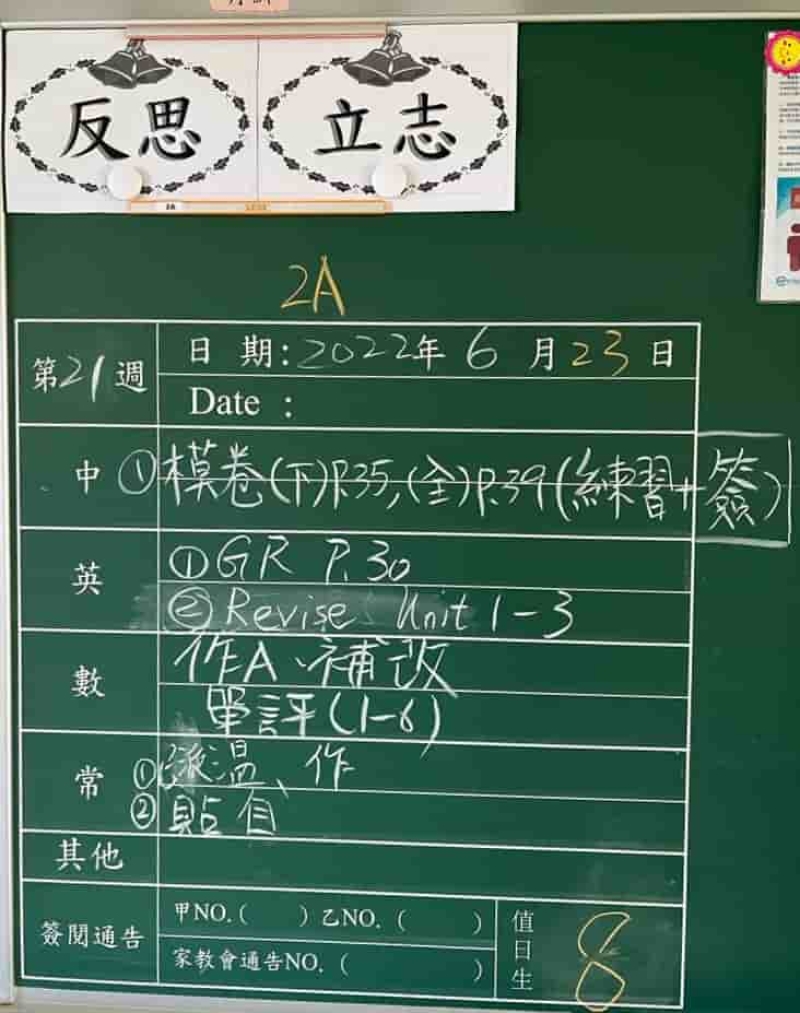 反思
立志
2A
第21週
日期:2022年6月23日
Date :
中 ①模卷(下)P.35,(全)P.39(練習+簽)
英 ①GR P.30
②Revise Unit 1-3
數 作A、補改
單評(1-6)
常 ①派溫、作
②貼自
其他
簽閱通告 甲NO.( ) 乙NO.( )
家教會通告NO.( )
值日生 8